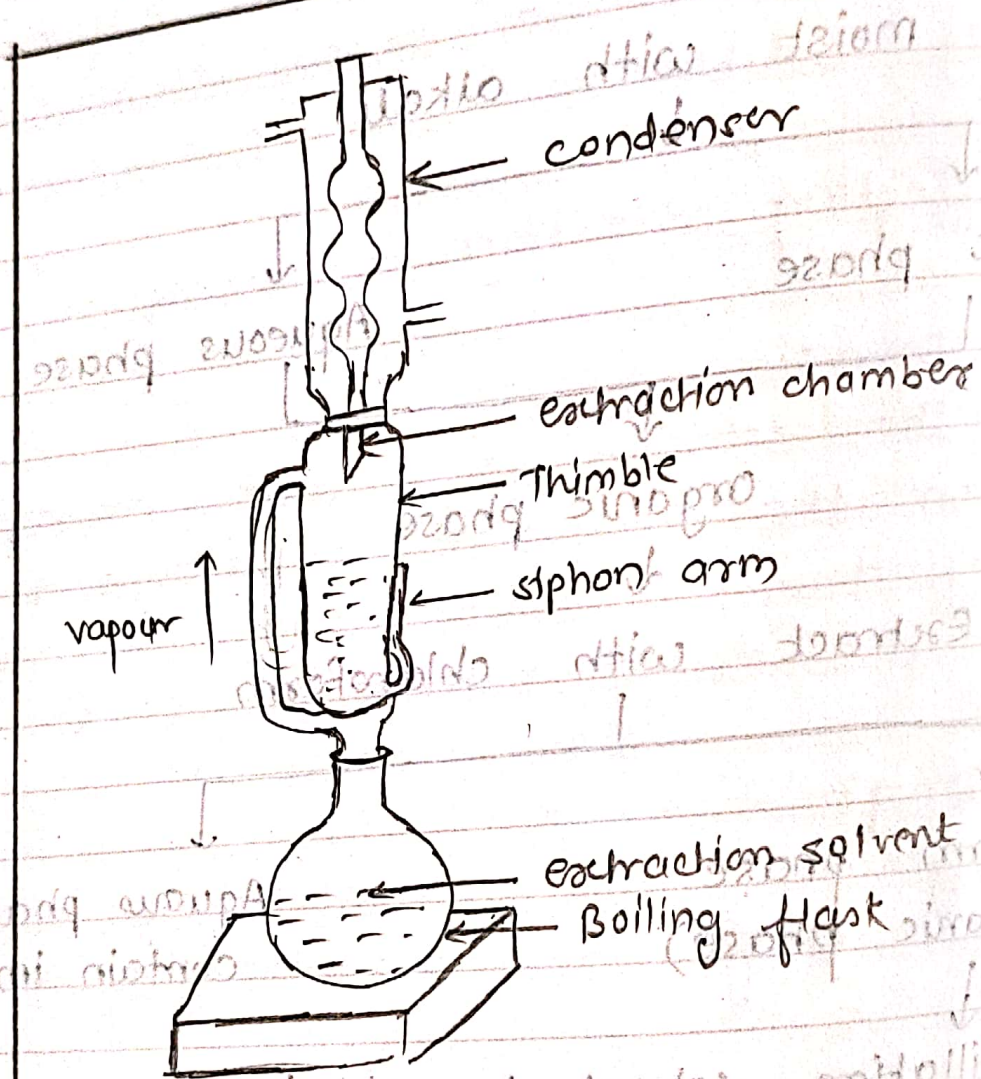 condenser
extraction chamber
Thimble
siphon arm
vapour
extraction solvent
Boiling flask